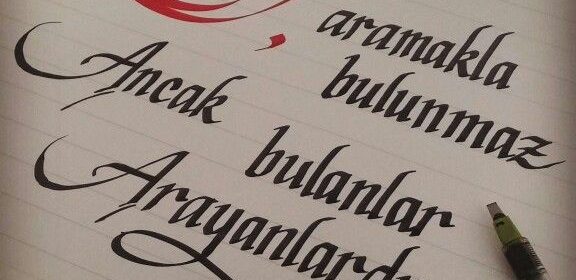 aramakla
bulunmaz
Ancak
bulanlar
Arayanlard